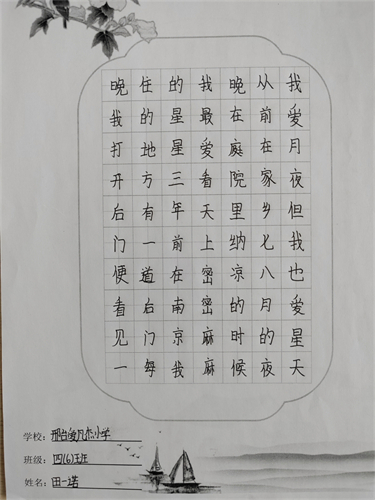 我爱月夜但我也爱星天
从前在家乡七八月的夜
晚在庭院里纳凉的时候
我最爱看天上密密麻麻
的星星三年前在南京我
住的地方有一道后门每
晚我打开后门便看见一
学校：邢台小学
班级：四(6)班
姓名：田一诺